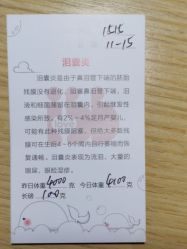 1515
11-15
泪囊炎
泪囊炎是由于鼻泪管下端的胚胎
残膜没有退化，阻塞鼻泪管下端，泪
液和细菌潴留在泪囊内，引起继发性
感染所致。有2%～4%足月产婴儿，
可能有此种残膜阻塞，但绝大多数残
膜可在生后4～6个周内自行萎缩而恢
复通畅，泪囊炎表现为流泪、大量的
眼屎、眼睑湿疹。
昨日体重4000克 今日体重4100克
长磅100克